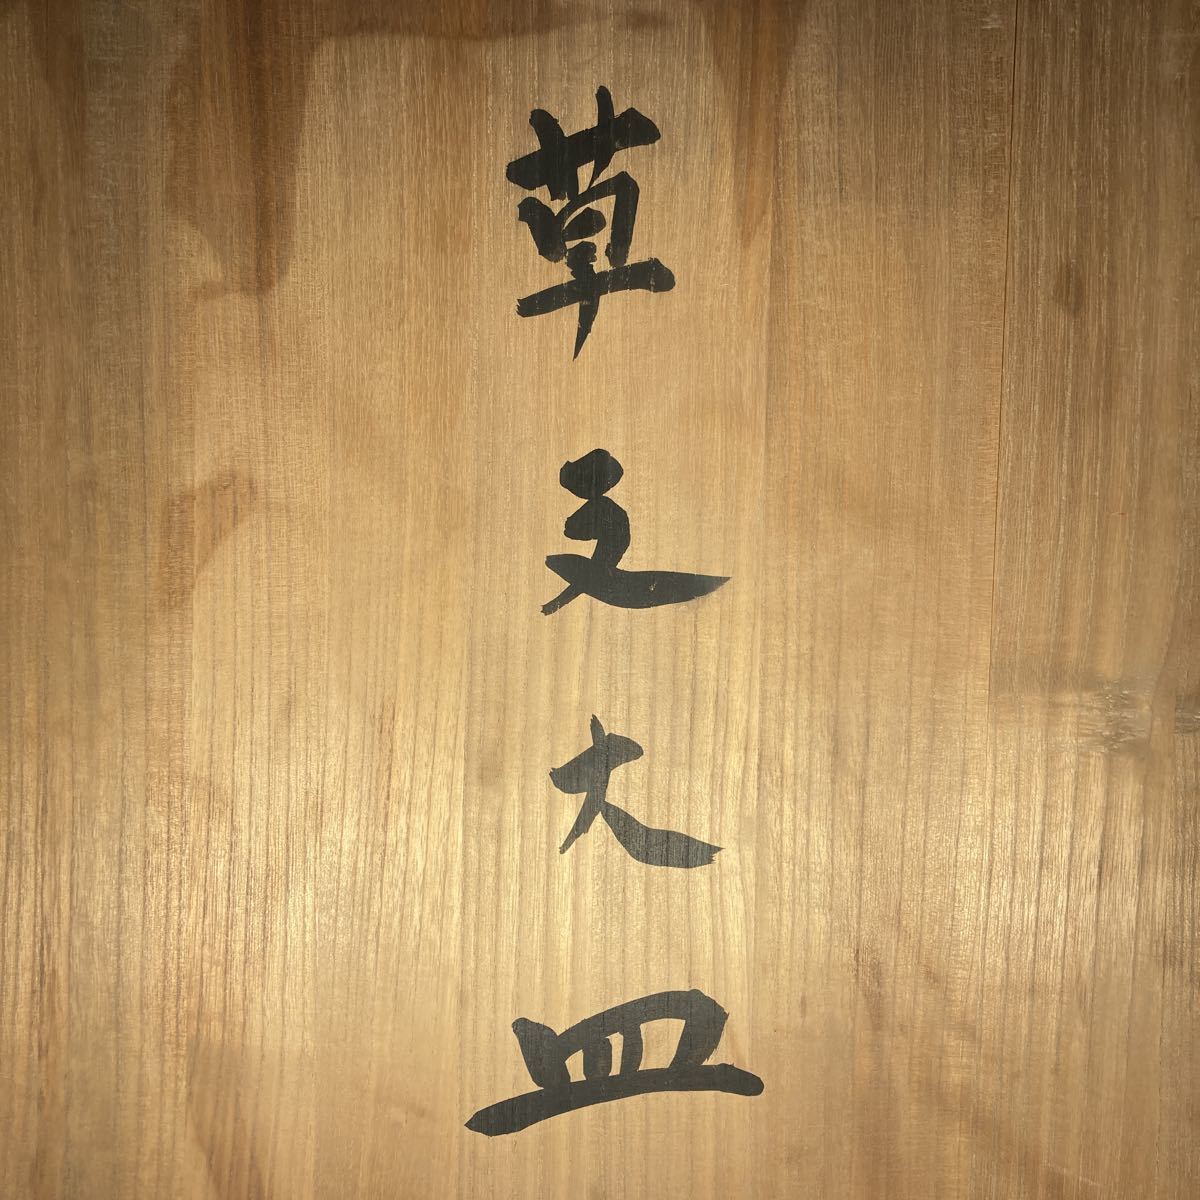 草文大皿